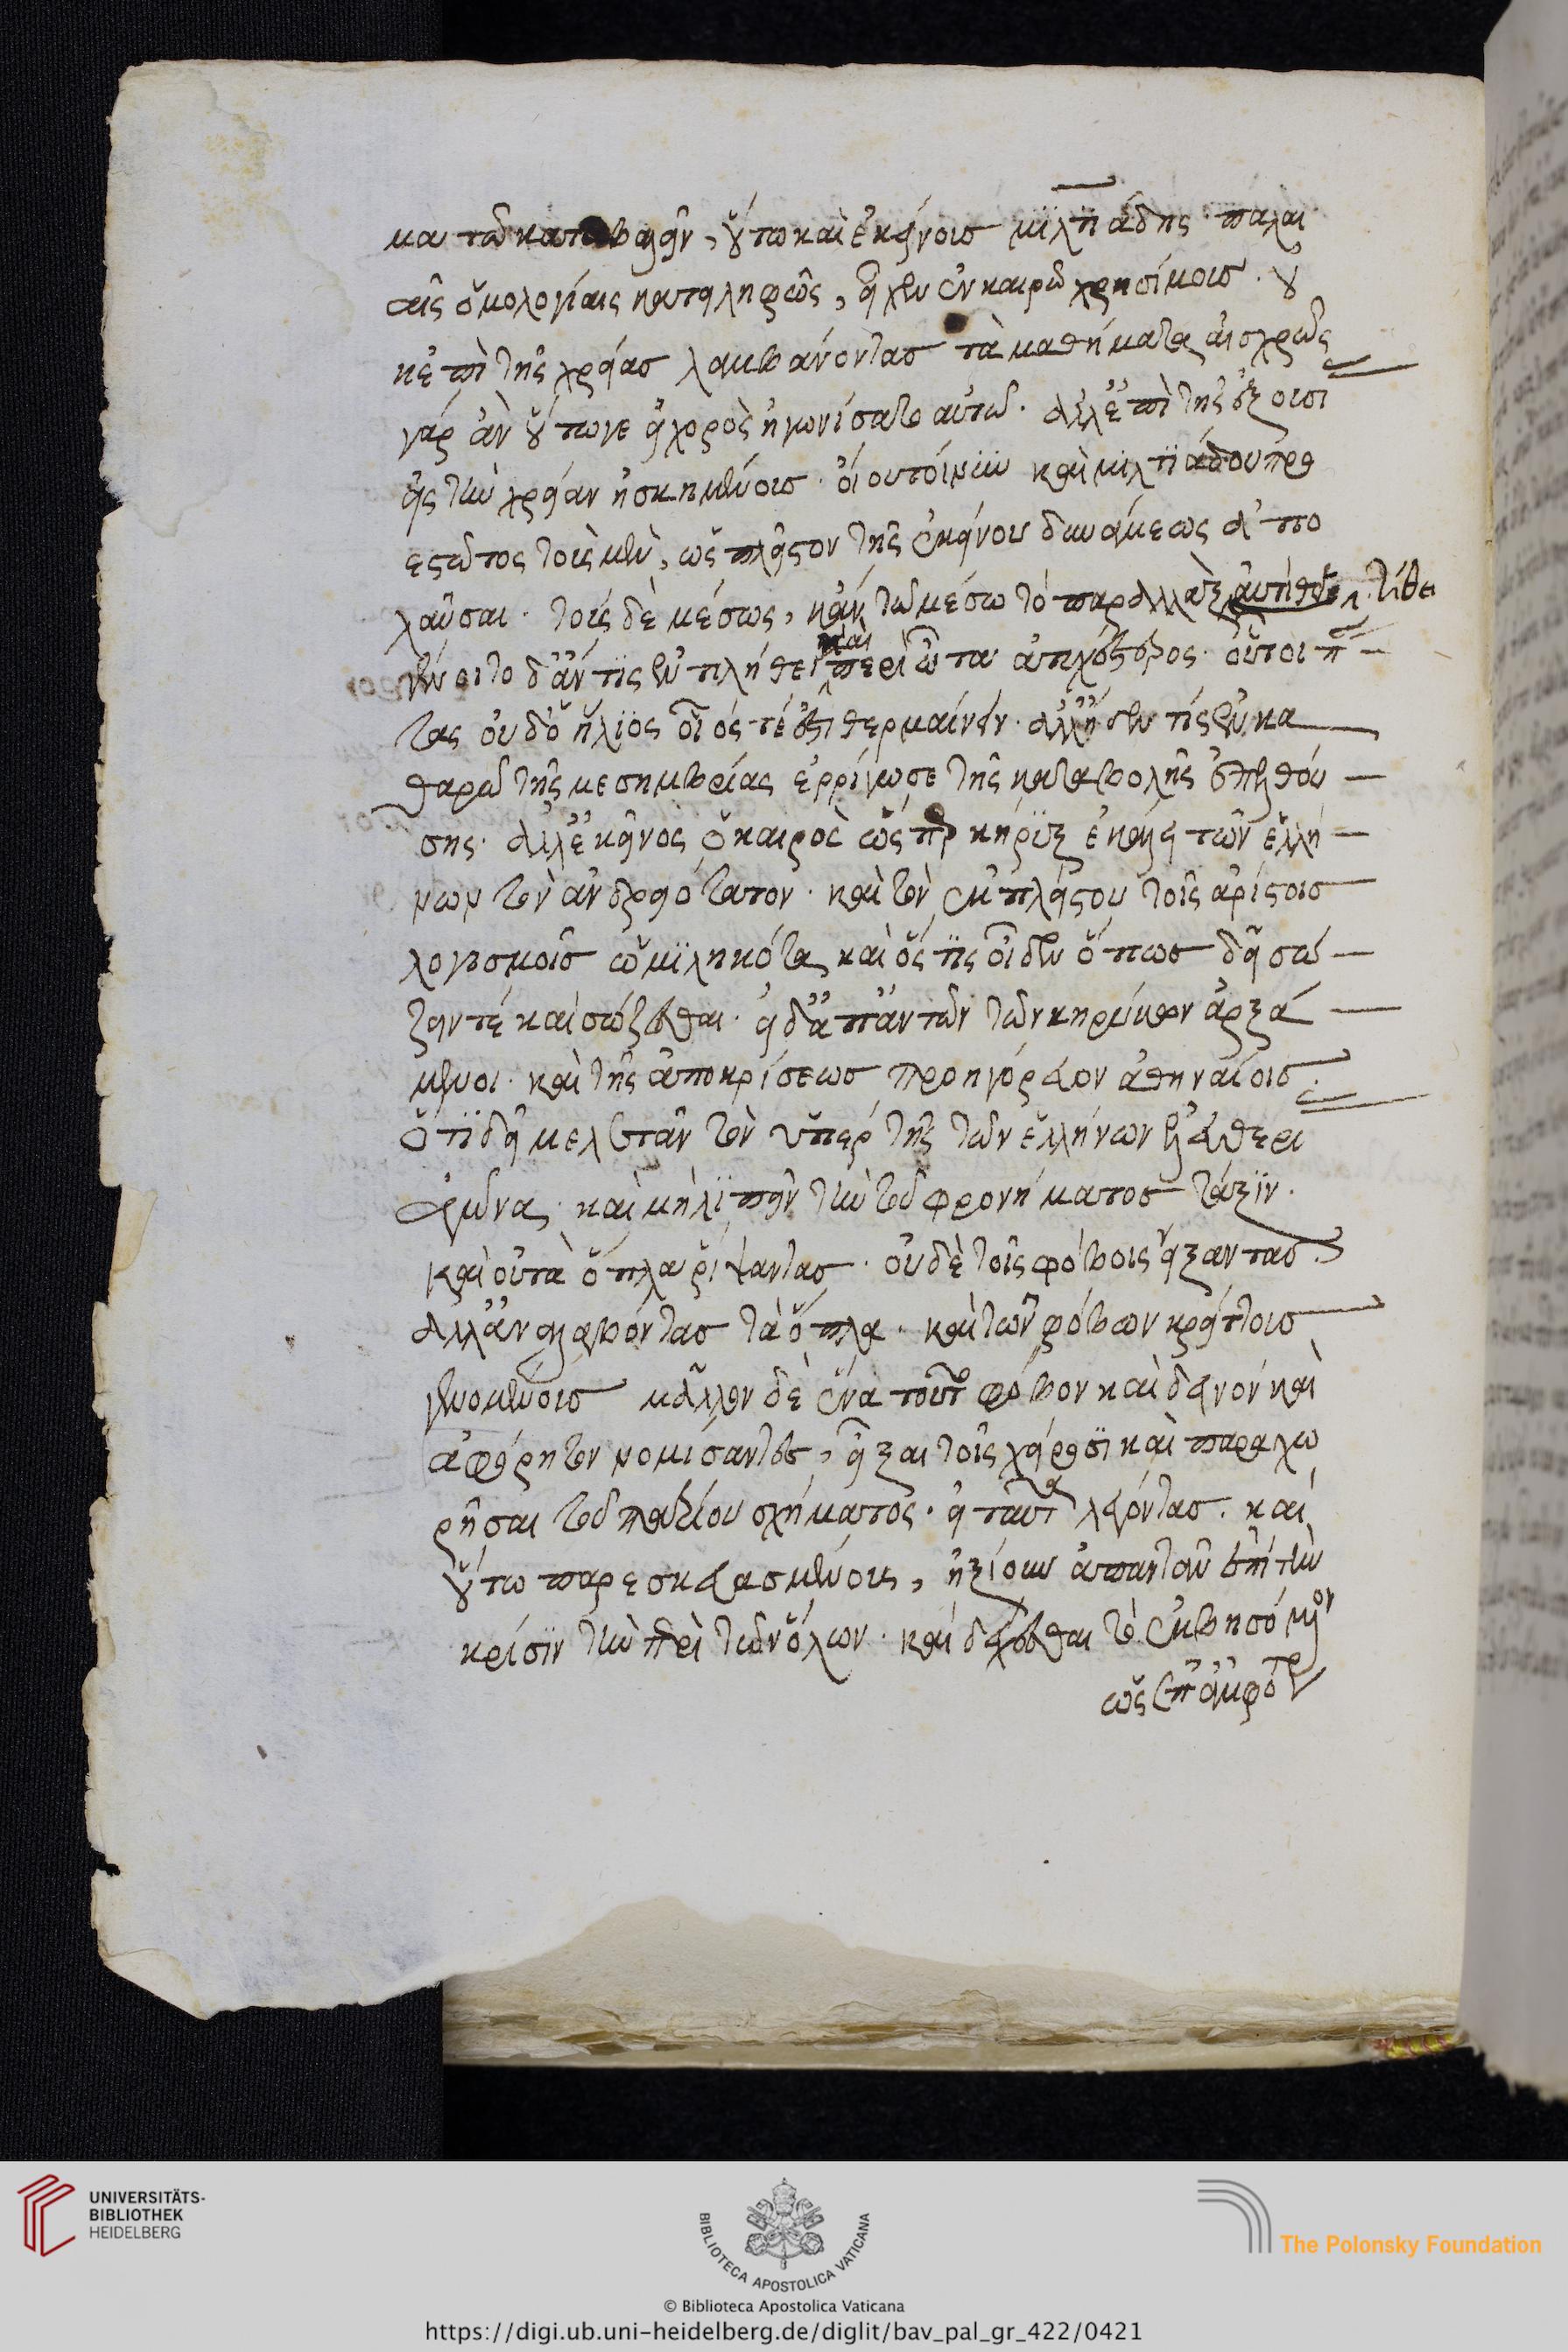 μα τῶ καταβαλεῖν, οὕτω καὶ ἐκείνοις μιλτιάδης παλαι
αῖς ὁμολογίαις κατειληφὼς, εἶχεν ἐν καιρῶ χρησίμοις. οὐ
κ ἐπὶ τῆς χρείας λαμβάνοντας τὰ μαθήματα, αἰσχρῶς
γὰρ ἂν οὕτωγε ὁ χορὸς ἠγωνίσατο αὐτῶ. ἀλλ' ἐπὶ τῆς ἐξουσί
ας τὴν χρείαν ἠσκημένοις. οἱ
ἑστῶτος τοὺς μὲν, ὡς πλεῖστον τῆς ἐκείνου δυνάμεως ἀπο
λαῦσαι. τοὺς δὲ μέσως, κἀν τῶ μέσω τὸ παραλλὰξ
γένοιτο δ' ἄν τις ἐν πλήθει καὶ περὶ ὦτα ἀπειρος. οὗτοι π
τας οὐδ' ὁ ἥλιος οἷός τέ ἐστι θερμαίνειν. ἀλλ' ἤδη τίς ἐν κα
θαρῶ τῆς μεσημβρίας ἐρρίγωσε τῆς καταβολῆς ἐπελθού
σης. ἀλλ' ἐκεῖνος ὁ καιρὸς ὥσπερ κήρυξ ἐκάλει τῶν ἑλλή
νων τὸν ἀνδρειότατον. καὶ τὸν ἐκ πλείστου τοῖς ἀρίστοις
λογισμοῖς ὡμιληκότα, καὶ ὅστις οἶδεν ὅπως δεῖ σώ
ζειν τέ καὶ σώζεσθαι. οἱ δ' ἀπάντων τῶν κηρύκων ἀρξά
μενοι. καὶ τῆς ἀποκρίσεως προηγόρευον ἀθηναίοις.
ὅτι δεῖ μελετᾶν τὸν ὑπὲρ τῆς τῶν ἑλλήνων ἐλευθερι
ἀγῶνα, καὶ μὴ λιπεῖν τὴν τοῦ φρονήματος τάξιν.
καὶ οὐ τὰ ὅπλα ῥίψαντας. οὐδὲ τοῖς φόβοις εἴξαντας.
ἀλλ' ἀναλαβόντας τὰ ὅπλα. καὶ τῶν φόβων κρείττοις
γενομένοις μᾶλλον δὲ ἕνα τοῦτον φόβον καὶ δεινὸν καὶ
ἀφόρητον νομίσαντες, εἶξαι τοῖς χείροσι καὶ παραχω
ρῆσαι τοῦ πατρίου σχήματος. οἱ ταῦτα λέγοντας. καὶ
οὕτω παρεσκευασμένοις, ἠξίουν ἀπαντᾶν ἐπὶ τὴν
κρίσιν τὴν περὶ τῶν ὅλων. καὶ δέχεσθαι τὸ ἐκβησόμενον
ὡς ἐπ' ἀμφότερ
UNIVERSITÄTS-
BIBLIOTHEK
HEIDELBERG
BIBLIOTECA APOSTOLICA VATICANA
The Polonsky Foundation
© Biblioteca Apostolica Vaticana
https://digi.ub.uni-heidelberg.de/diglit/bav_pal_gr_422/0421